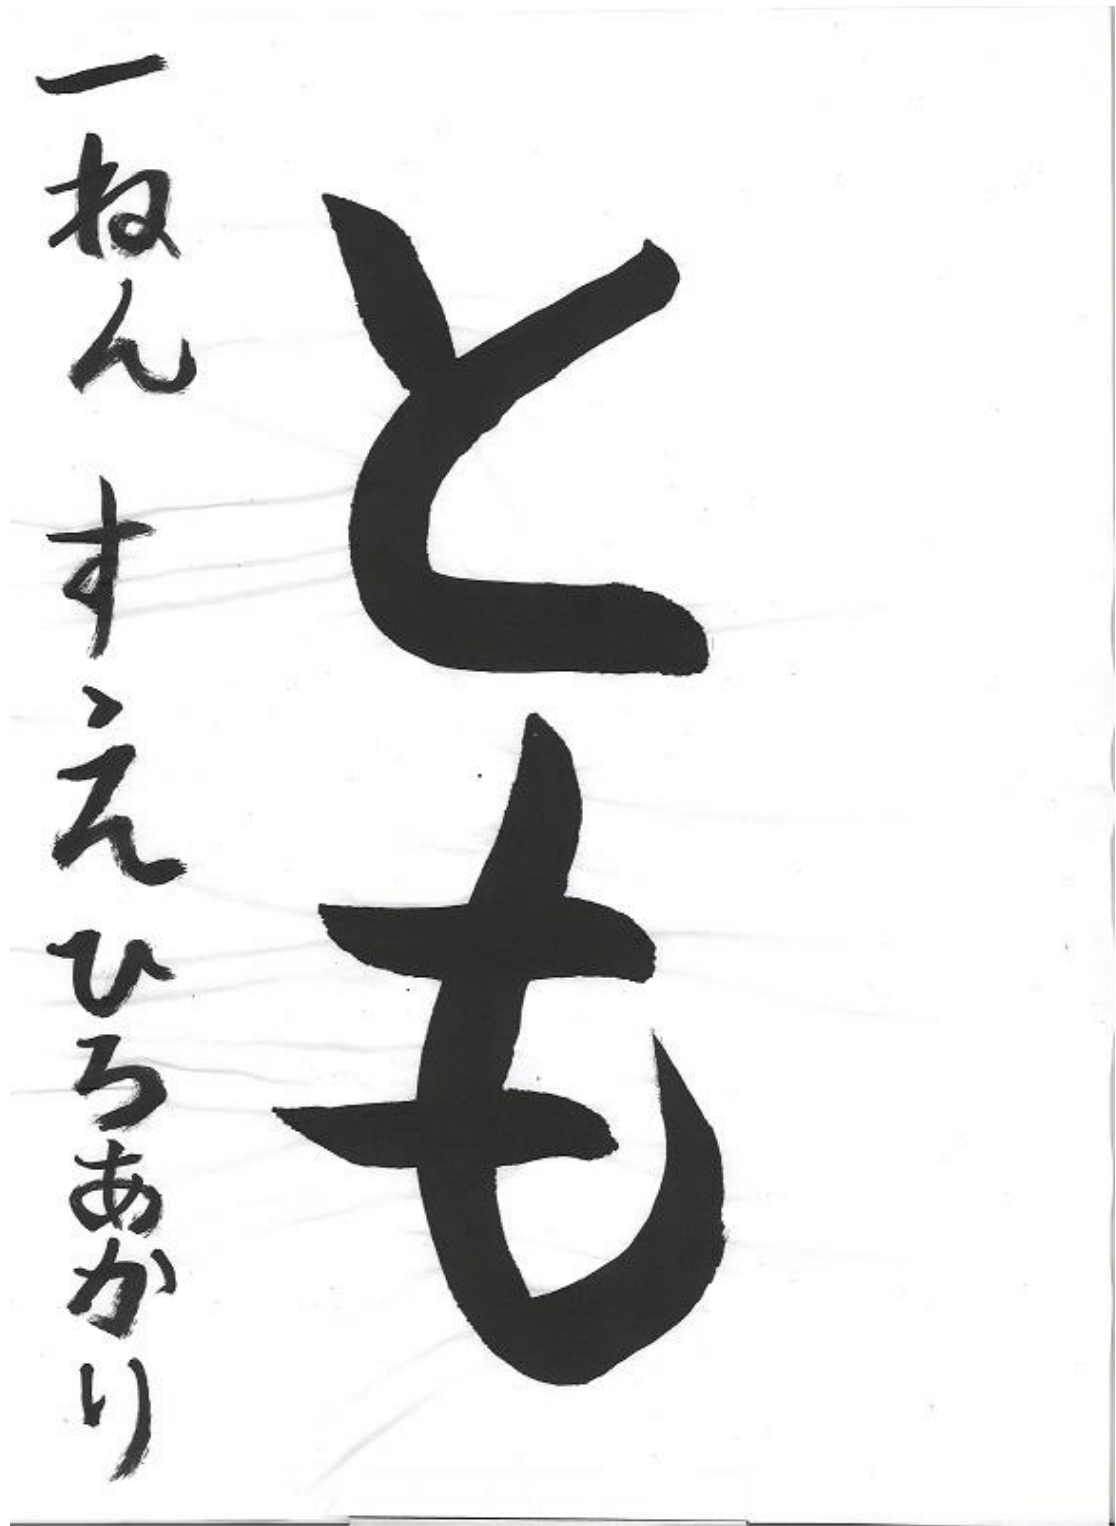 とも
一ねん すえひろあかり